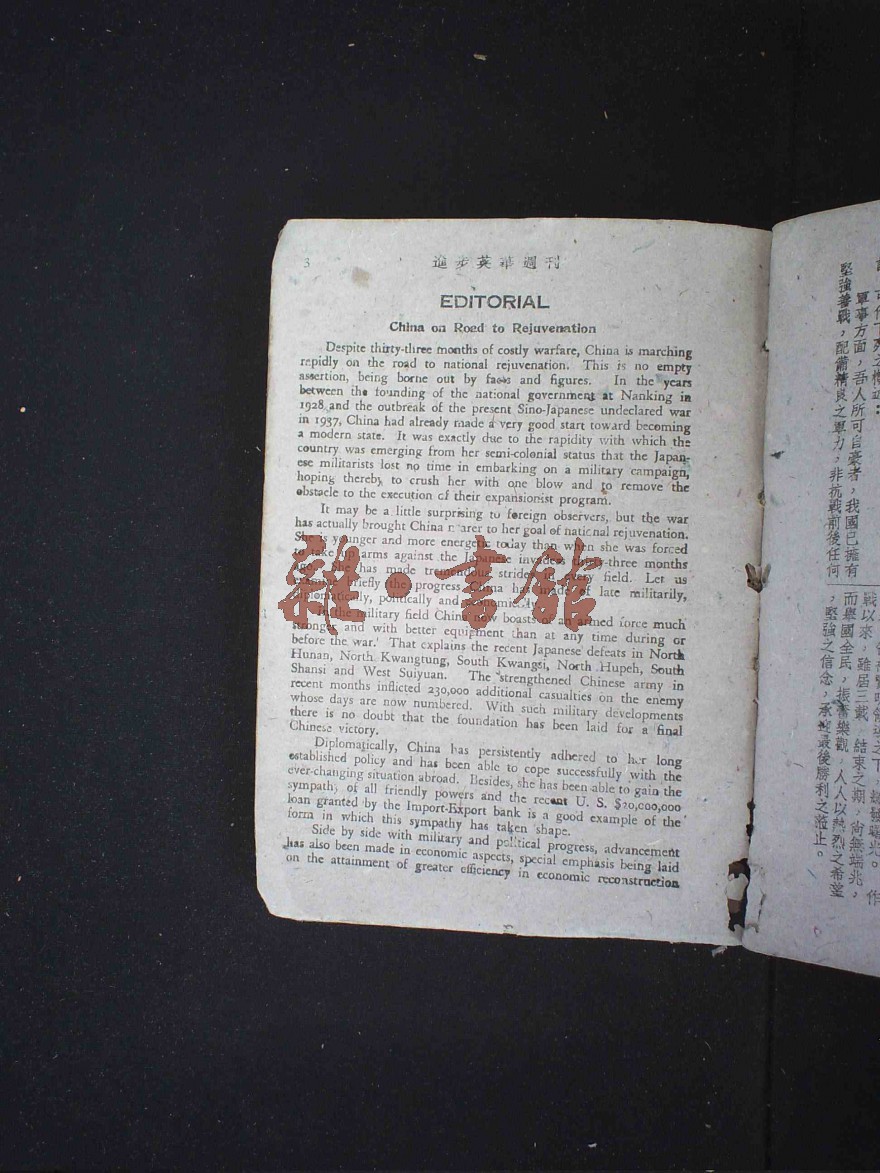 3
進步英華週刊
EDITORIAL
China on Road to Rejuvenation
Despite thirty-three months of costly warfare, China is marching
rapidly on the road to national rejuvenation. This is no empty
assertion, being borne out by facts and figures. In the years
between the founding of the national government at Nanking in
1928 and the outbreak of the present Sino-Japanese undeclared war
in 1937, China had already made a very good start toward becoming
a modern state. It was exactly due to the rapidity with which the
country was emerging from her semi-colonial status that the Japan-
ese militarists lost no time in embarking on a military campaign,
hoping thereby to crush her with one blow and to remove the
obstacle to the execution of their expansionist program.
It may be a little surprising to foreign observers, but the war
has actually brought China nearer to her goal of national rejuvenation.
She is younger and more energetic today than when she was forced
to take up arms against the Japanese invaders thirty-three months
ago. She has made tremendous strides in every field. Let us
examine briefly the progress China has made of late militarily,
diplomatically, politically and economically.
In the military field China now boasts of an armed force much
stronger and with better equipment than at any time during or
before the war. That explains the recent Japanese defeats in North
Hunan, North Kwangtung, South Kwangsi, North Hupeh, South
Shansi and West Suiyuan. The strengthened Chinese army in
recent months inflicted 230,000 additional casualties on the enemy
whose days are now numbered. With such military developments
there is no doubt that the foundation has been laid for a final
Chinese victory.
Diplomatically, China has persistently adhered to her long
established policy and has been able to cope successfully with the
ever-changing situation abroad. Besides, she has been able to gain the
sympathy of all friendly powers and the recent U. S. $20,000,000
loan granted by the Import-Export bank is a good example of the
form in which this sympathy has taken shape.
Side by side with military and political progress, advancement
has also been made in economic aspects, special emphasis being laid
on the attainment of greater efficiency in economic reconstruction
雜·書館
軍事方面，吾人所可自豪者，我國已擁有
堅強善戰，配備精良之軍力，非抗戰前後任何
戰以來，雖居三載，結束之期，尚無端兆，
而舉國全民，振奮樂觀，人人以熱烈之希望
，堅強之信念，承受最後勝利之蒞止。